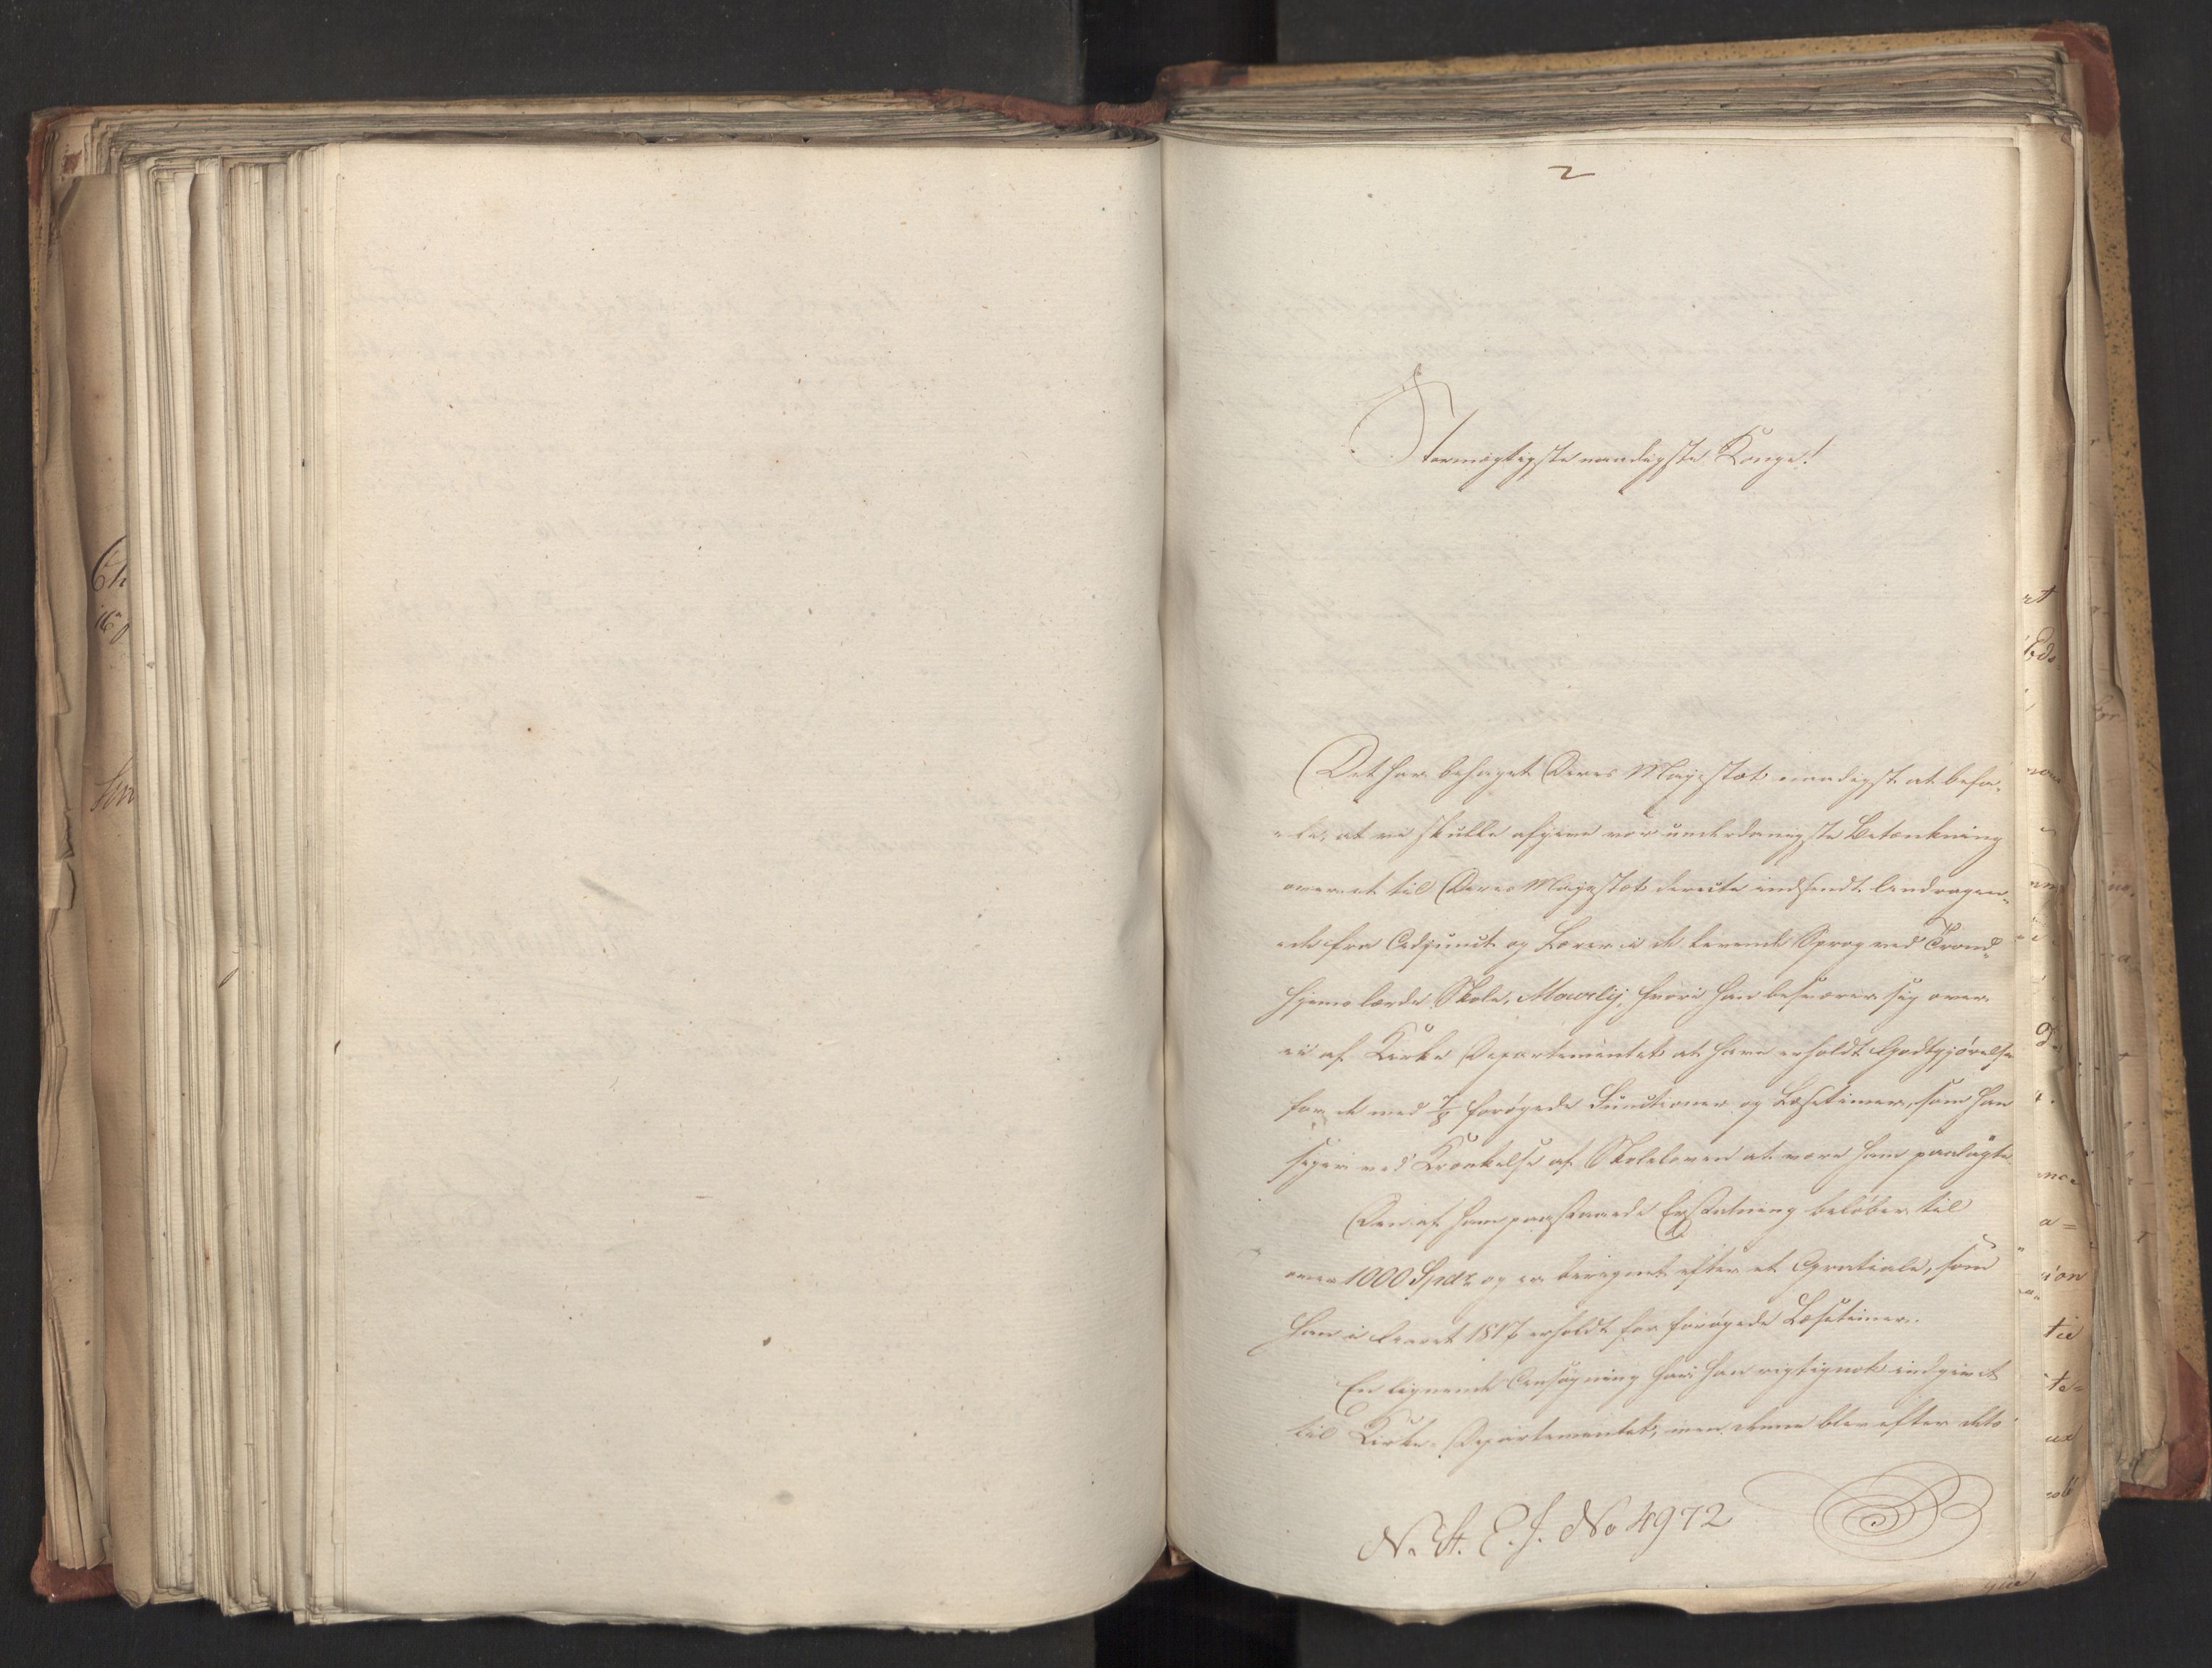 2
Stormægtigste naadigste Konge!
Det har behaget Deres Majestæt naadigst at befa-
-le, at vi skulle afgive vor underdanigste Betænkning
over et til Deres Majestæt directe indsendt Andragen-
ede fra Adjunct og Lærer i de levende Sprog ved Trond-
hjems lærde Skole, Mowelij, hvori han besværer sig over
ei af Kirke Departementet at have erholdt Godtgjørelse
for de med 7/8 forøgede Functioner og Læsetimer, som han
siger ved Krænkelse af Skoleloven at være ham paalagte.
Den af ham paastaaede Erstatning beløber til
over 1000 Spdr og er beregnet efter et Gratiale, som
han i Aaret 1817 erholdt for forøgede Læsetimer.
En lignende Ansøgning har han rigtignok indgivet
til Kirke-Departementet, men denne blev efter dets
N. St. E. J. No 4972